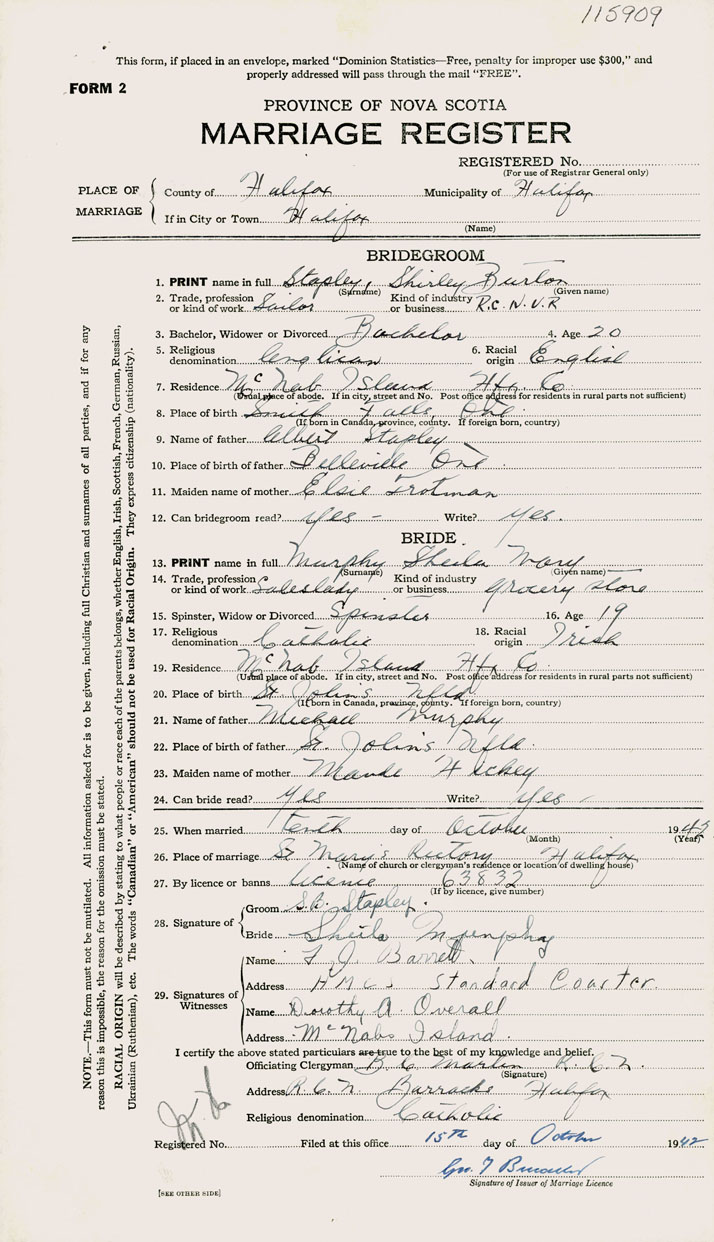 115909
This form, if placed in an envelope, marked "Dominion Statistics—Free, penalty for improper use $300," and
properly addressed will pass through the mail "FREE".
FORM 2
PROVINCE OF NOVA SCOTIA
MARRIAGE REGISTER
REGISTERED No.
(For use of Registrar General only)
PLACE OF MARRIAGE
County of Halifax Municipality of Halifax
If in City or Town Halifax
(Name)
BRIDEGROOM
1. PRINT name in full Stapley, Shirley Burton
(Surname) (Given name)
2. Trade, profession or kind of work Sailor Kind of industry or business R.C.N.V.R
3. Bachelor, Widower or Divorced Bachelor 4. Age 20
5. Religious denomination Anglican 6. Racial origin English
7. Residence McNab Island Hfx. Co
(Usual place of abode. If in city, street and No. Post office address for residents in rural parts not sufficient)
8. Place of birth Smith Falls, Ont.
(If born in Canada, province, county. If foreign born, country)
9. Name of father Albert Stapley
10. Place of birth of father Belleville Ont.
11. Maiden name of mother Elsie Trotman
12. Can bridegroom read? Yes - Write? Yes.
BRIDE
13. PRINT name in full Murphy Sheila Mary
(Surname) (Given name)
14. Trade, profession or kind of work Saleslady Kind of industry or business Grocery store
15. Spinster, Widow or Divorced Spinster 16. Age 19
17. Religious denomination Catholic 18. Racial origin Irish
19. Residence McNab Island Hfx Co.
(Usual place of abode. If in city, street and No. Post office address for residents in rural parts not sufficient)
20. Place of birth St. John's Nfld
(If born in Canada, province, county. If foreign born, country)
21. Name of father Michael Murphy
22. Place of birth of father St. John's Nfld.
23. Maiden name of mother Maude Hickey
24. Can bride read? Yes Write? Yes -
25. When married tenth day of October 1942
(Month) (Year)
26. Place of marriage St Mary's Rectory Halifax
(Name of church or clergyman's residence or location of dwelling house)
27. By licence or banns licence 63832
(If by licence, give number)
28. Signature of
Groom S.B. Stapley.
Bride Sheila Murphy
29. Signatures of Witnesses
Name F. J. Barrett.
Address H.M.C.S. Standard Coaster.
Name Dorothy A. Overall
Address McNabs Island.
I certify the above stated particulars are true to the best of my knowledge and belief.
Officiating Clergyman B. C. Martin R.C.N.
(Signature)
Address R.C.N. Barracks Halifax
Religious denomination Catholic
Registered No. Filed at this office 15th day of October 1942
Signature of Issuer of Marriage Licence
[SEE OTHER SIDE]
NOTE.—This form must not be mutilated. All information asked for is to be given, including full Christian and surnames of all parties, and if for any
reason this is impossible, the reason for the omission must be stated.
RACIAL ORIGIN will be described by stating to what people or race each of the parents belongs, whether English, Irish, Scottish, French, German, Russian,
Ukrainian (Ruthenian), etc. The words "Canadian" or "American" should not be used for Racial Origin. They express citizenship (nationality).